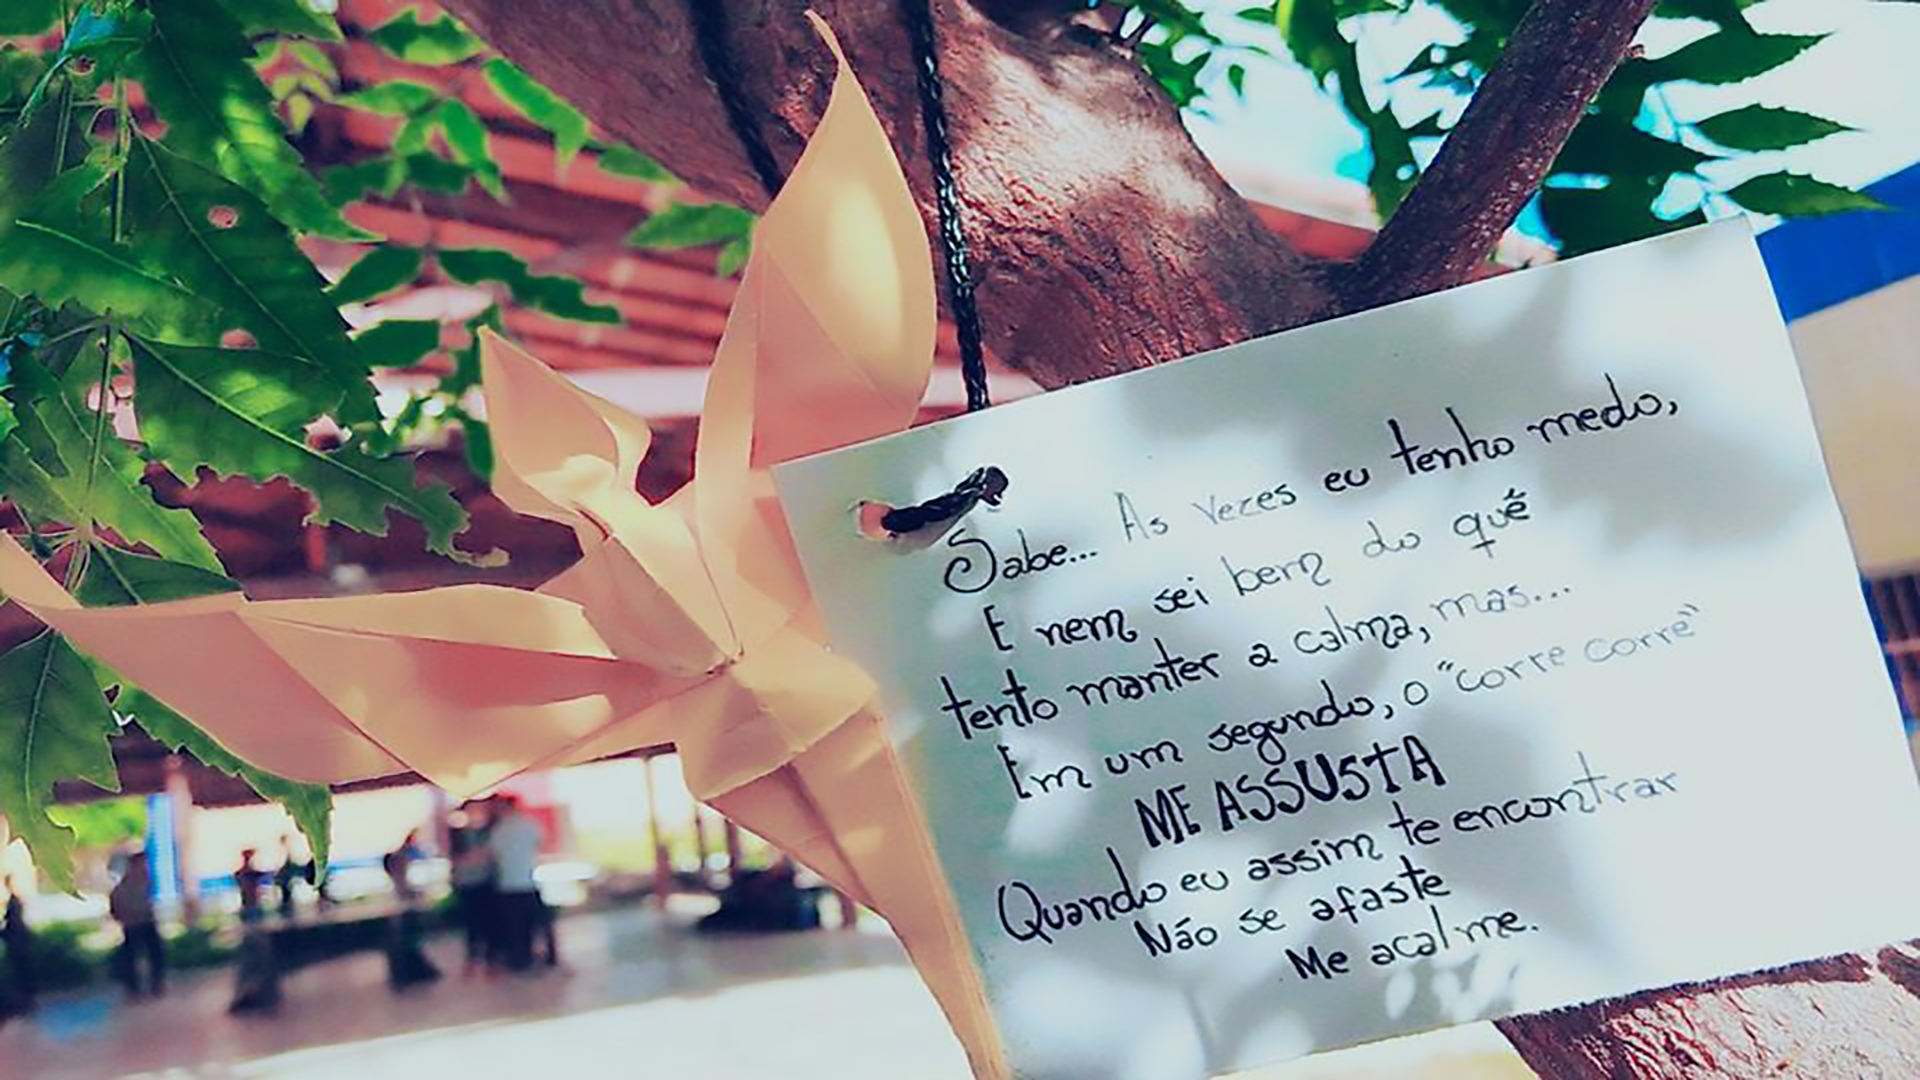 Sabe... As vezes eu tenho medo,
E nem sei bem do quê
tento manter a calma, mas...
Em um segundo, o "corre corre"
ME ASSUSTA
Quando eu assim te encontrar
Não se afaste
Me acalme.